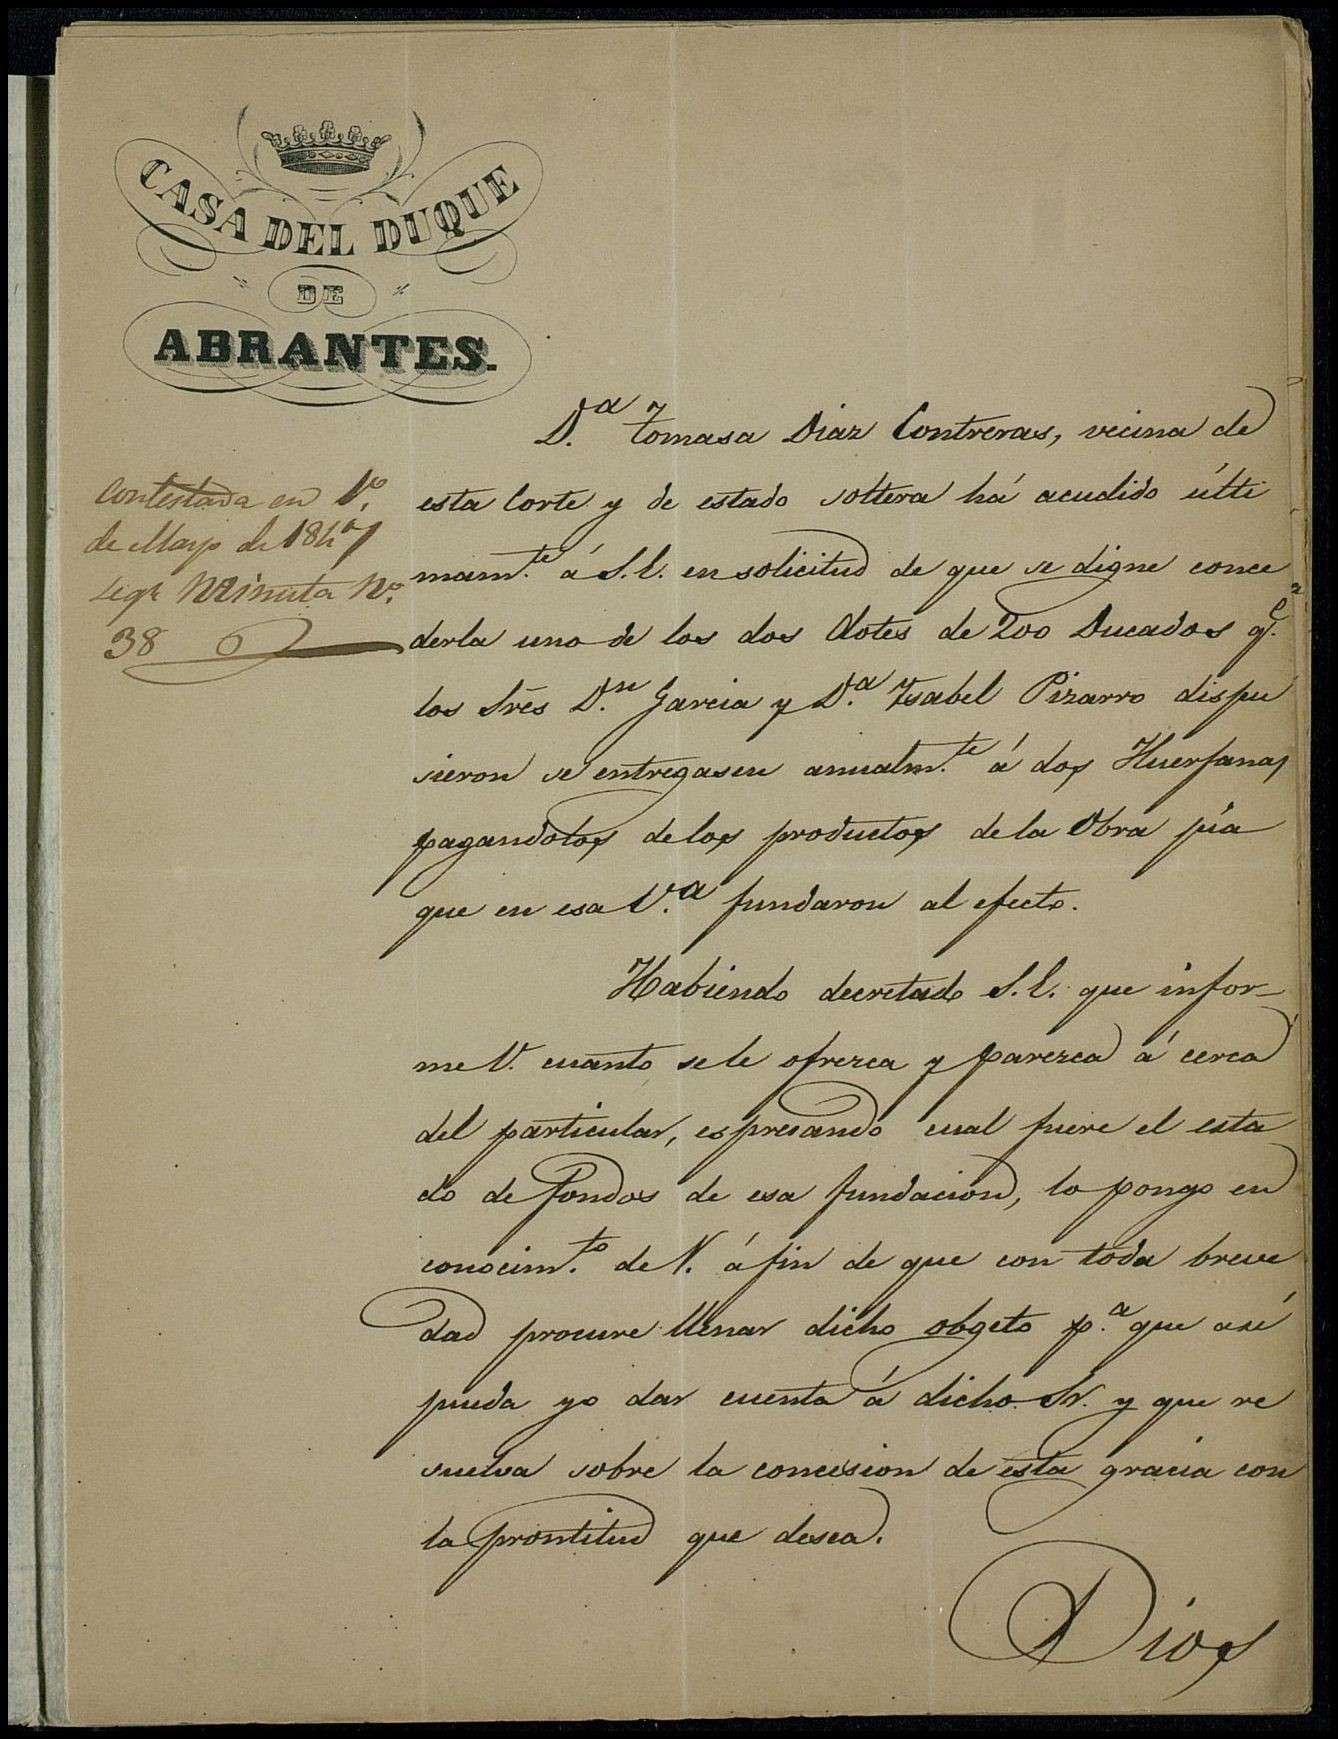 CASA DEL DUQUE
DE
ABRANTES.
Contestada en 1º.
de Mayo de 1847
segn Minuta Nº.
38
D.ª Tomasa Diaz Contreras, vecina de
esta Corte y de estado soltera há acudido últi
mam.te á S.E. en solicitud de que se digne conce
derla uno de los dos dotes de 200 Ducados q.e
los Srēs D.n Garcia y D.ª Ysabel Pizarro dispu
sieron se entregasen anualm.te á dos Huerfanas
pagandolos de los productos de la Obra pia
que en esa V.ª fundaron al efecto.
Habiendo decretado S.E. que infor-
me V. cuanto se le ofrezca y parezca á cerca
del particular, espresando cual fuere el esta
do de fondos de esa fundacion, lo pongo en
conocim.to de V. á fin de que con toda breve
dad procure llenar dicho obgeto p.ª que asi
pueda yo dar cuenta á dicho Sr. y que re
suelva sobre la concesion de esta gracia con
la prontitud que desea.
Dios